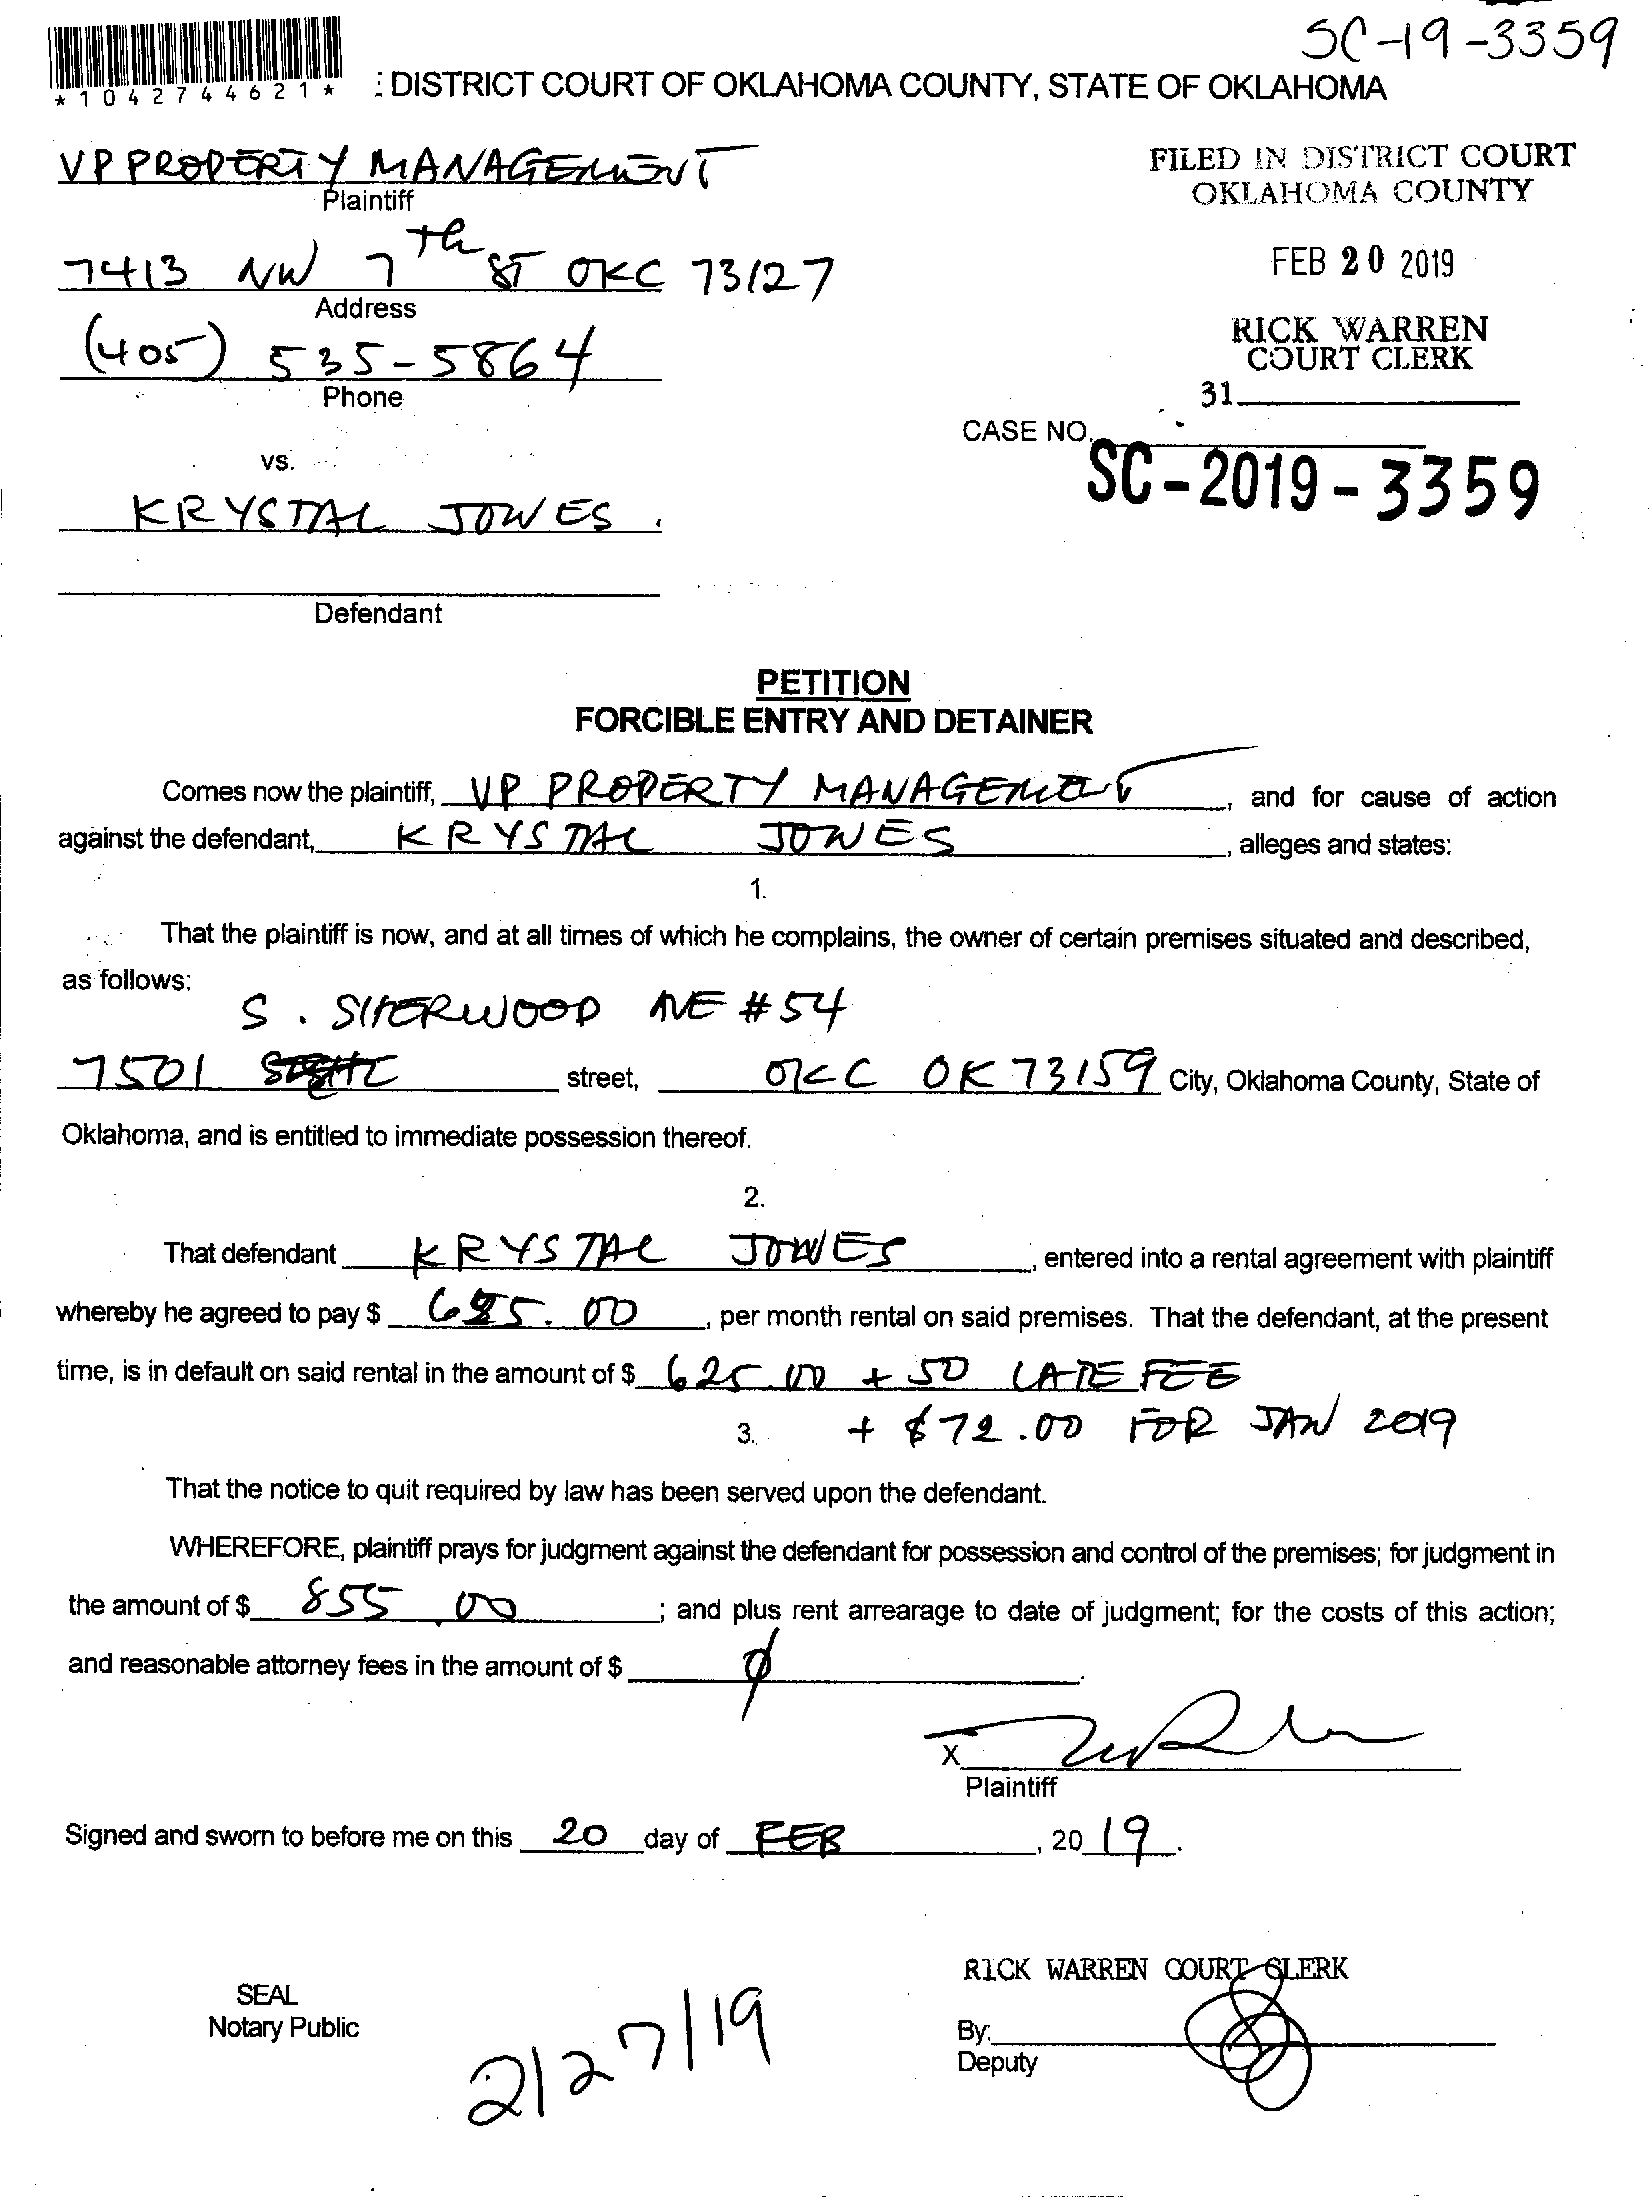 SC-19-3359
*1042744621*
: DISTRICT COURT OF OKLAHOMA COUNTY, STATE OF OKLAHOMA
VP PROPERTY MANAGEMENT
Plaintiff
FILED IN DISTRICT COURT
OKLAHOMA COUNTY
7413 NW 7th ST OKC 73127
Address
FEB 20 2019
(405) 535-5864
Phone
RICK WARREN
COURT CLERK
31
CASE NO.
SC-2019-3359
vs.
KRYSTAL JONES
Defendant
PETITION
FORCIBLE ENTRY AND DETAINER
Comes now the plaintiff, VP PROPERTY MANAGEMENT, and for cause of action
against the defendant, KRYSTAL JONES, alleges and states:
1.
That the plaintiff is now, and at all times of which he complains, the owner of certain premises situated and described,
as follows:
S. SHERWOOD AVE #54
7501 street, OKC OK 73159 City, Oklahoma County, State of
Oklahoma, and is entitled to immediate possession thereof.
2.
That defendant KRYSTAL JONES, entered into a rental agreement with plaintiff
whereby he agreed to pay $ .00, per month rental on said premises. That the defendant, at the present
time, is in default on said rental in the amount of $ 625.00 + 50 LATE FEE
3. + $ .00 FOR JAN 2019
That the notice to quit required by law has been served upon the defendant.
WHEREFORE, plaintiff prays for judgment against the defendant for possession and control of the premises; for judgment in
the amount of $ 855.00; and plus rent arrearage to date of judgment; for the costs of this action;
and reasonable attorney fees in the amount of $ ∅.
X
Plaintiff
Signed and sworn to before me on this 20 day of FEB, 2019.
RICK WARREN COURT CLERK
SEAL
Notary Public
2/27/19
By:
Deputy